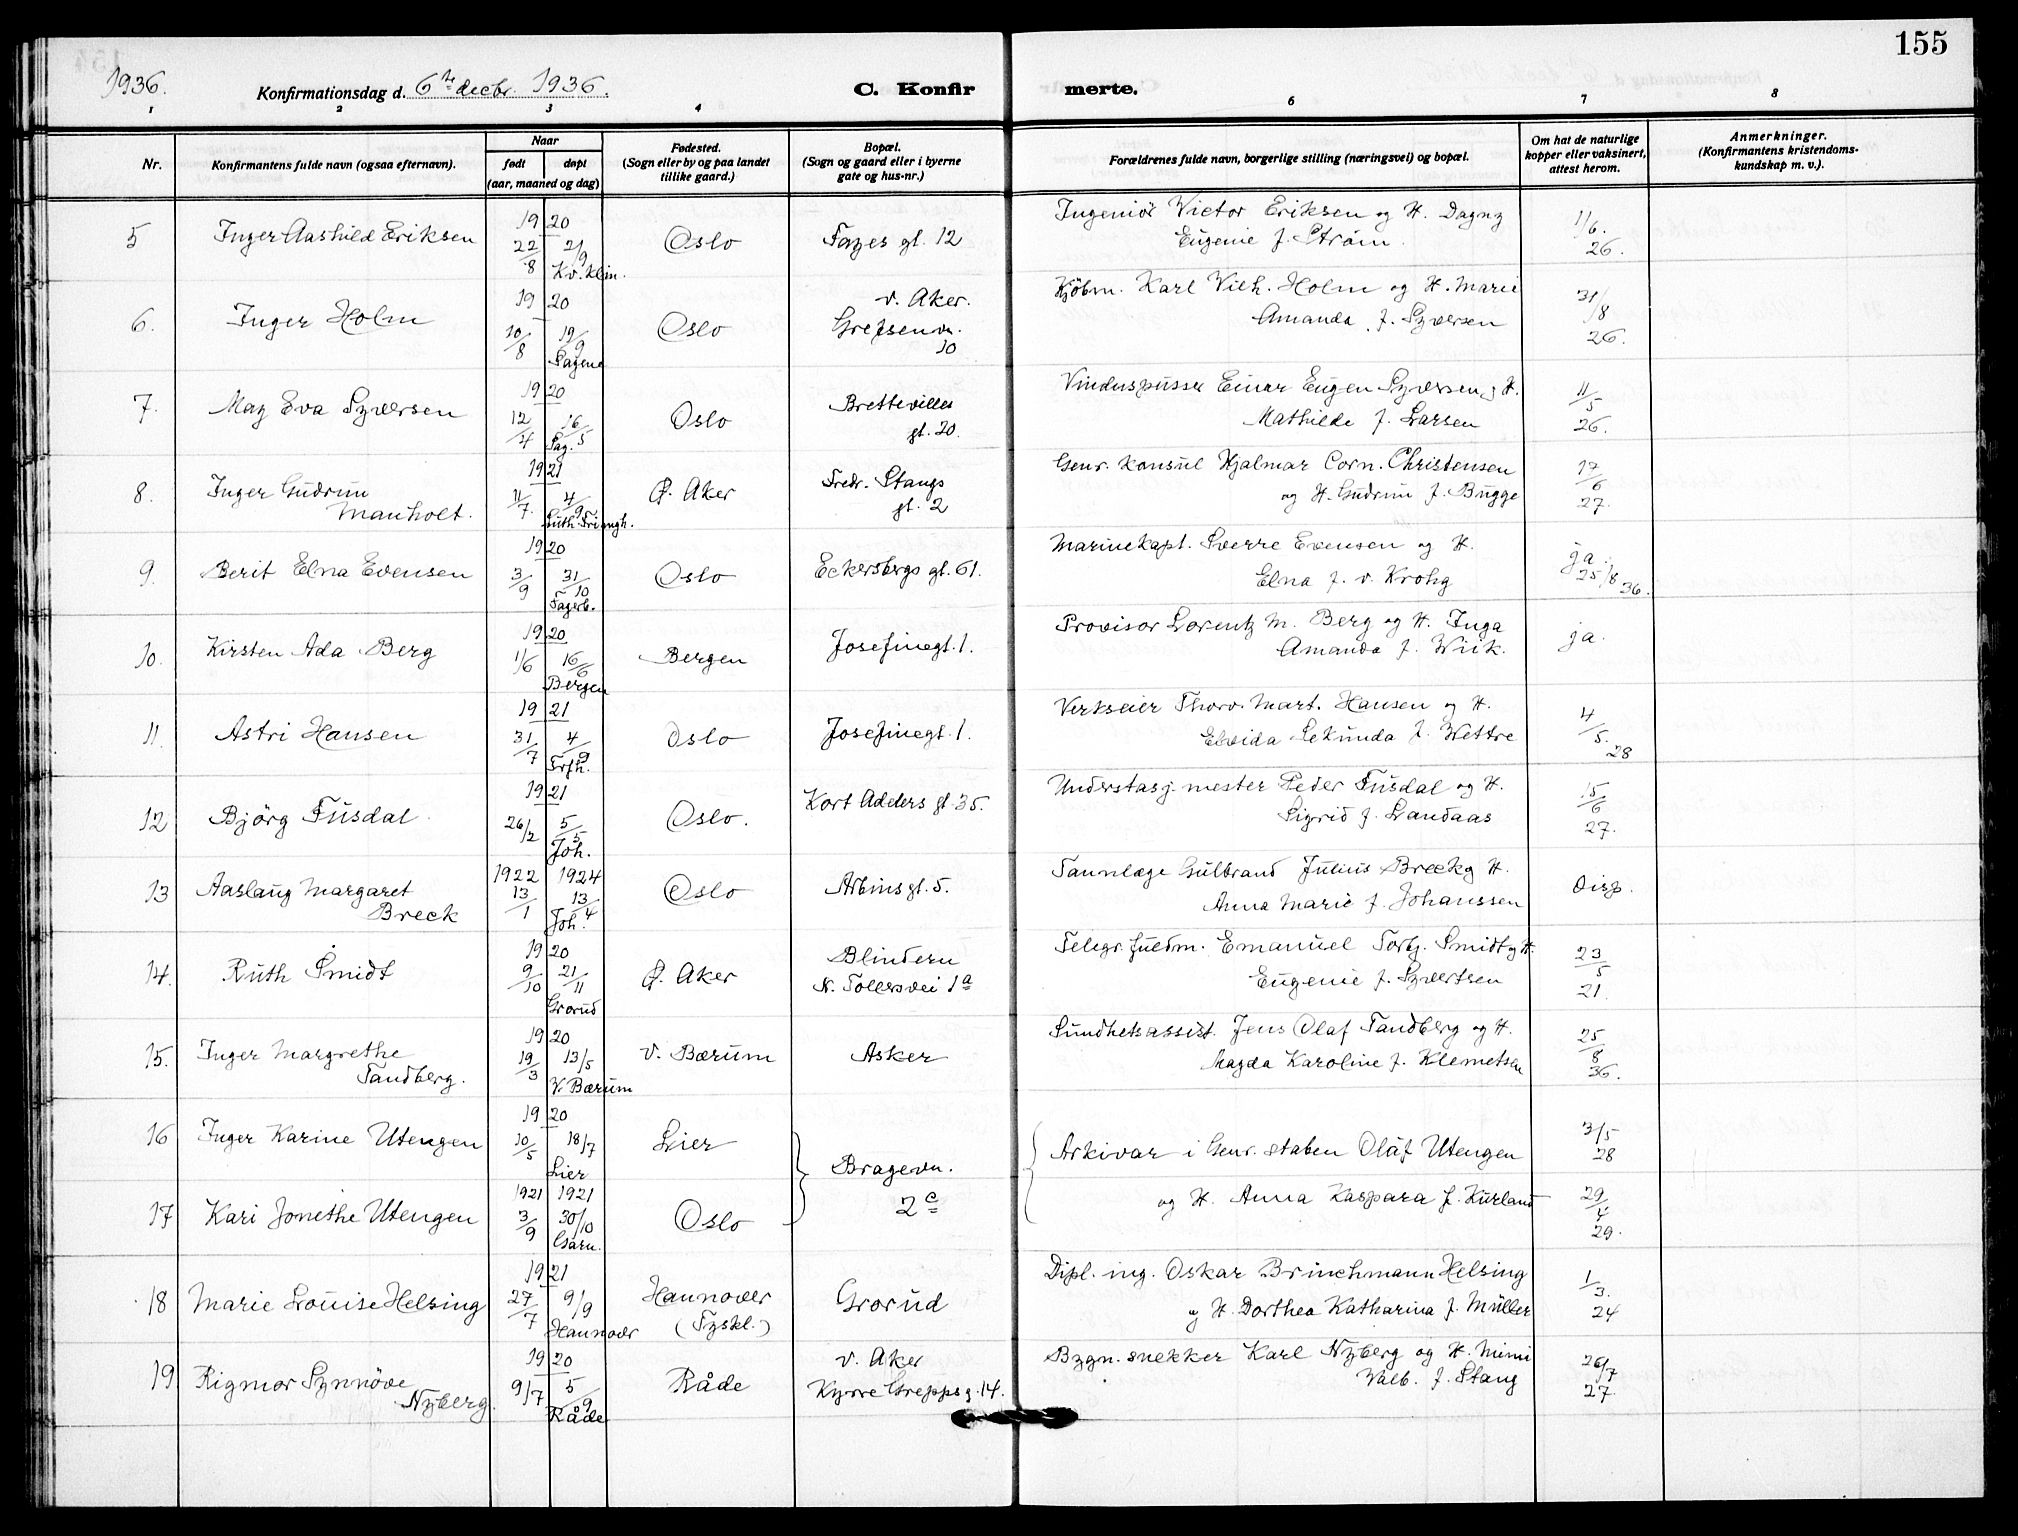 155
1936.
Konfirmationsdag d. 6te decbr. 1936.
C. Konfirmerte.
1 2 3 4 6 7 8
Nr.
Konfirmantens fulde navn (ogsaa efternavn).
Naar
født
døpt
(aar, maaned og dag)
Fødested.
(Sogn eller by og paa landet
tillike gaard.)
Bopæl.
(Sogn og gaard eller i byerne
gate og hus-nr.)
Forældrenes fulde navn, borgerlige stilling (næringsvei) og bopæl.
Om hat de naturlige
kopper eller vaksinert,
attest herom.
Anmerkninger.
(Konfirmantens kristendoms-
kundskap m. v.).
5 Inger Aashild Eriksen
19 20
22/8 2/9
Kv. klin.
Oslo
Fayes gt. 12
Ingeniør Victor Eriksen og H. Dagny
Eugenie f. Strøm.
1/6.
26.
6. Inger Holm
19 20
10/8 19/9
Sagene
Oslo
v. Aker.
Grefsenvn.
10
Kjøbm. Karl Vilh. Holm og H. Marie
Amanda f. Syversen
31/8
26.
7. May Eva Syversen
19 20
12/4 16/5
Sag.
Oslo
Brettevilles
gt. 20.
Vinduspusser Einar Eugen Syversen og H.
Mathilde f. Larsen
11/5
26.
8. Inger Gudrun
Manholt.
19 21
11/7 4/9
Oslo
Ø. Aker
Fredr. Stangs
gt. 2
Genr. Konsul Hjalmar Corn. Christensen
og H. Gudrun f. Bugge
17/6
27.
9 Berit Elna Evensen
19 20
3/9 31/10
Fagerb.
Oslo
Eckersbergs gt. 61.
Marinekapt. Sverre Evensen og H.
Elna f. v. Krohg
ja.
25/8 36.
10. Kirsten Ada Berg
19 20
1/6 16/6
Bergen
Bergen
Josefinegt. 1.
Provisor Lorentz M. Berg og H. Inga
Amanda f. Wiik.
ja.
11. Astri Hansen
19 21
31/7 4/9
Trfh.
Oslo
Josefinegt. 1.
Verkseier Thorv. Mart. Hansen og H.
Elvida Sekunda f. Wettre
4/5.
28
12 Bjørg Fusdal
19 21
26/2 5/5
Joh.
Oslo.
Kort Adelers gt. 35.
Understasj. mester Peder Fusdal og H.
Sigrid f. Landaas
15/6
27.
13 Aaslaug Margaret
Breck
1922 1924
13/1 13/4
Joh.
Oslo
Arbinsgt. 5.
Tannlæge Gulbrand Julius Breck og H.
Anna Marie f. Johanssen
Disp.
14. Ruth Smidt
19 20
9/10 21/11
Grorud
Ø. Aker
Blindern
N. Tollersvei 1a
Telegr. fuldm. Emanuel Torbj. Smidt og H.
Eugenie f. Syvertsen
23/5
21.
15. Inger Margrethe
Tandberg.
19 20
19/3 13/5
V. Bærum
V. Bærum
Asker
Sundhetsassist. Jens Olaf Tandberg og H.
Magda Karoline f. Klemetsen
25/8
36.
16 Inger Karine Utengen
19 20
10/5 18/7
Lier
Lier
Bragevn.
2c
Arkivar i Genr. staben Olaf Utengen
og H. Anna Kaspara f. Kurland
3/5
28
17 Kari Jonethe Utengen
1921 1921
3/9 30/10
Garn.
Oslo
29/4
29.
18 Marie Louise Helsing
19 21
27/7 9/9
Hannover
Hannover
(Tyskl.)
Grorud
Dipl. ing. Oskar Brinchmann Helsing
og H. Dorthea Katharina f. Müller
1/3.
24
19 Rigmor Synnøve
Nyberg.
19 20
9/7 5/9
Råde
Råde
v. Aker
Kyrre Grepps g. 14.
Bygn. snekker Karl Nyberg og H. Mimi
Valb. f. Stang
26/7
27.